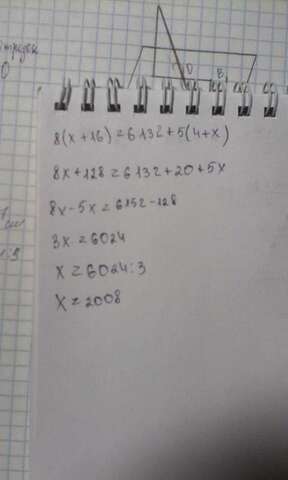 O
B
8(x+16)=6132+5(4+x)
8x+128=6132+20+5x
8x-5x=6152-128
3x=6024
x=6024:3
x=2008